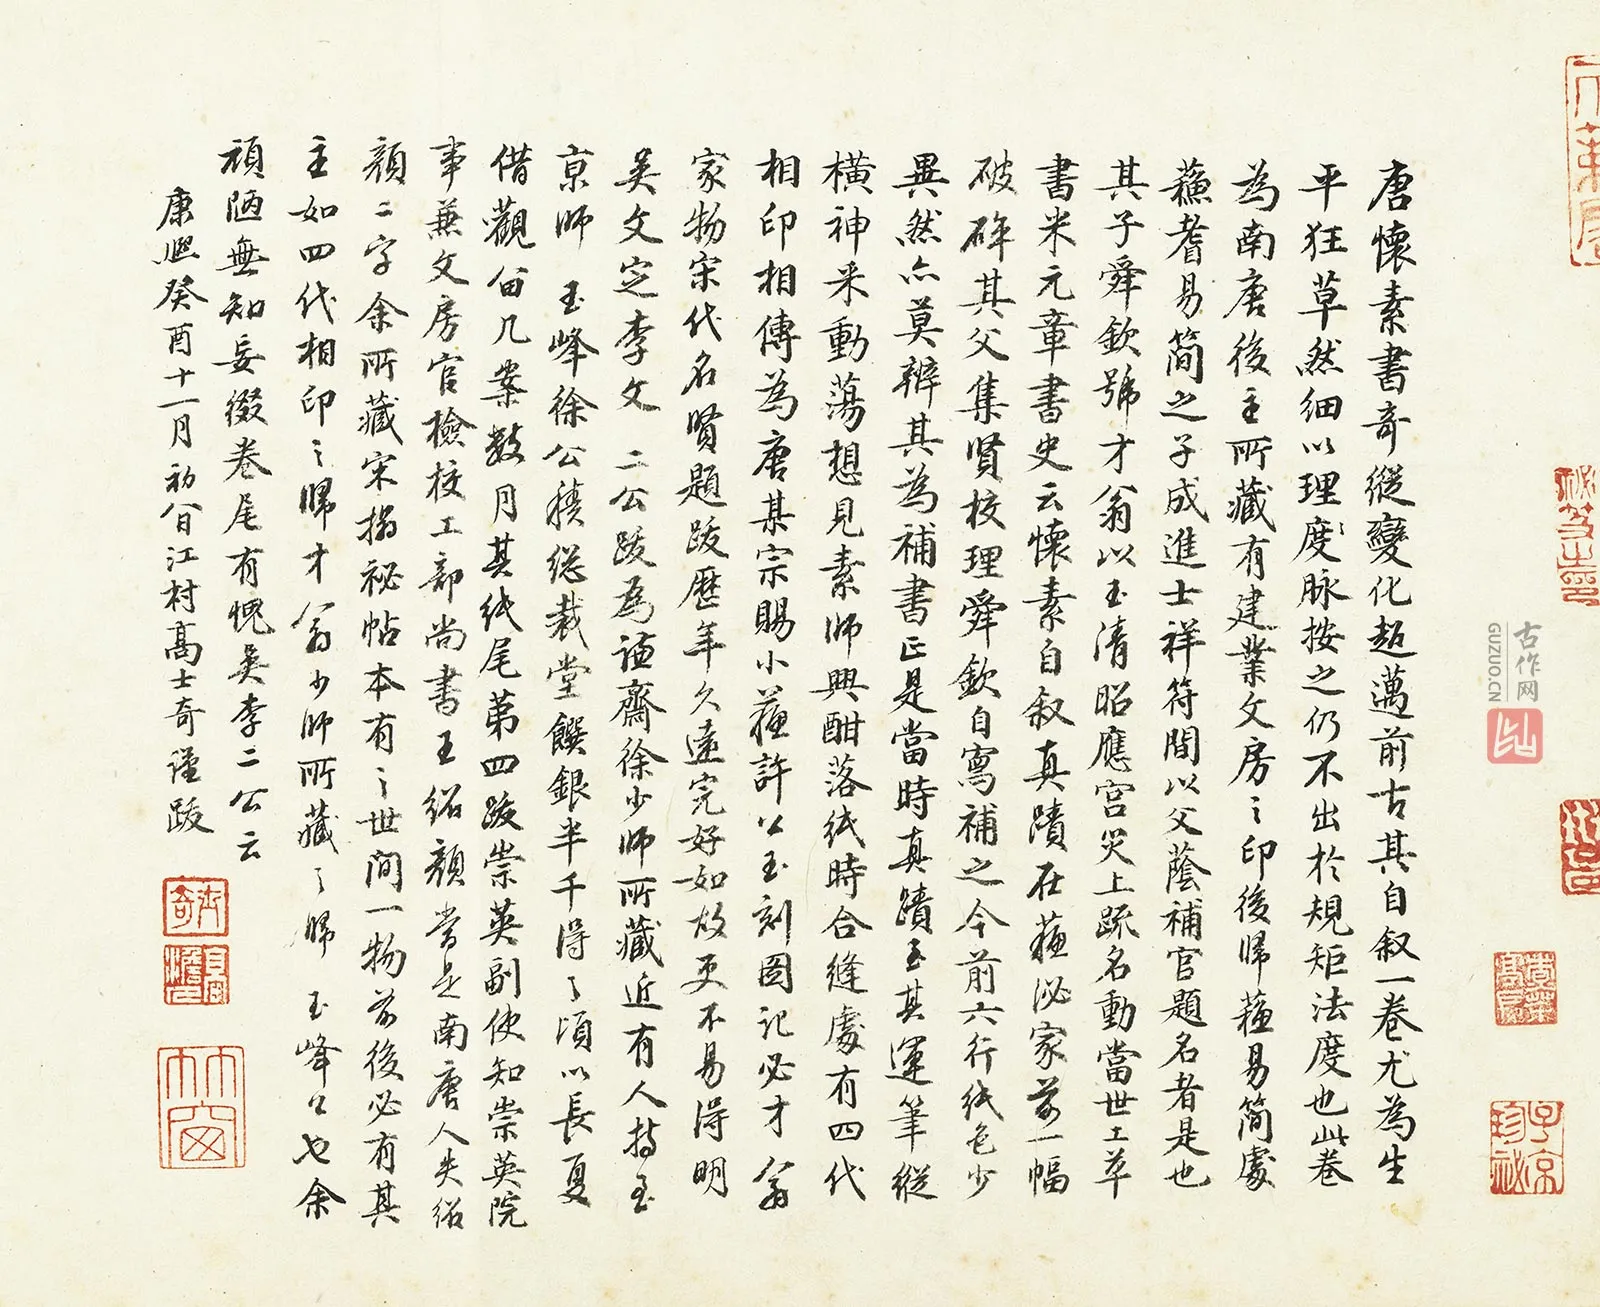 唐懷素書奇縱變化超邁前古其自叙一卷尤為生
平狂草然細以理度脉按之仍不出於規矩法度也此卷
為南唐後主所藏有建業文房之印後歸蘓易簡處
蘓耆易簡之子成進士祥符間以父蔭補官題名者是也
其子舜欽號才翁以玉清昭應宫災上疏名動當世工草
書米元章書史云懷素自叙真蹟在蘓泌家前一幅
破碎其父集賢校理舜欽自寫補之今前六行紙色少
異然亦莫辨其為補書正是當時真蹟玉其運筆縱
橫神采動蕩想見素師興酣落紙時合縫處有四代
相印相傳為唐某宗賜小蘓許公玉刻圖記必才翁
家物宋代名賢題跋歷年久遠完好如故更不易得明
吴文定李文 二公跋為謙齋徐少師所藏近有人持至
京師 玉峰徐公積總裁堂饌銀半千得之頃以長夏
借觀留几案數月其紙尾第四跋崇英副使知崇英院
事兼文房官檢校工部尚書王紹顏當是南唐人失紹
顏二字余所藏宋搨祕帖本有之世間一物前後必有其
主如四代相印之歸才翁少師所藏之歸 玉峰公也余
頑陋無知妄綴卷尾有愧吴李二公云
康熙癸酉十一月初八日江村高士奇謹跋
士奇
竹窗
子京珍祕
古作网
GUZUO.CN